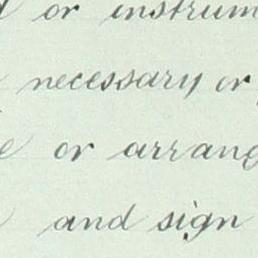 or instrum
necessary or
or arrang
and sign